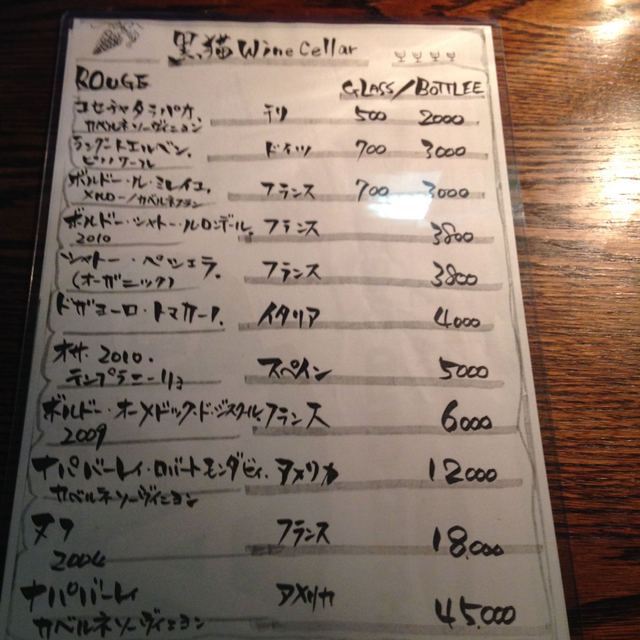 黒猫 Wine Cellar
ROUGE GLASS/BOTTLEE
コセチャタラパカ. チリ 500 2000
カベルネソーヴィニヨン
ラングートエルベン. ドイツ 700 3000
ピノノワール
ボルドー・ル・ミレイユ. フランス 700 3000
メルロー/カベルネフラン
ボルドー・シャトー・ルロンデル. フランス 3800
2010
シャトー・ペシェラ. フランス 3800
(オーガニック)
ドガヨーロ・トスカーナ. イタリア 4000
2010. スペイン 5000
テンプラニーリョ
ボルドー・オーメドック・ド・ジスクール フランス 6000
2009
ナパバーレイ・ロバートモンダビィ. アメリカ 12000
カベルネソーヴィニヨン
ヌフ フランス 18,000
2004
ナパバーレイ アメリカ 45,000
カベルネソーヴィニヨン